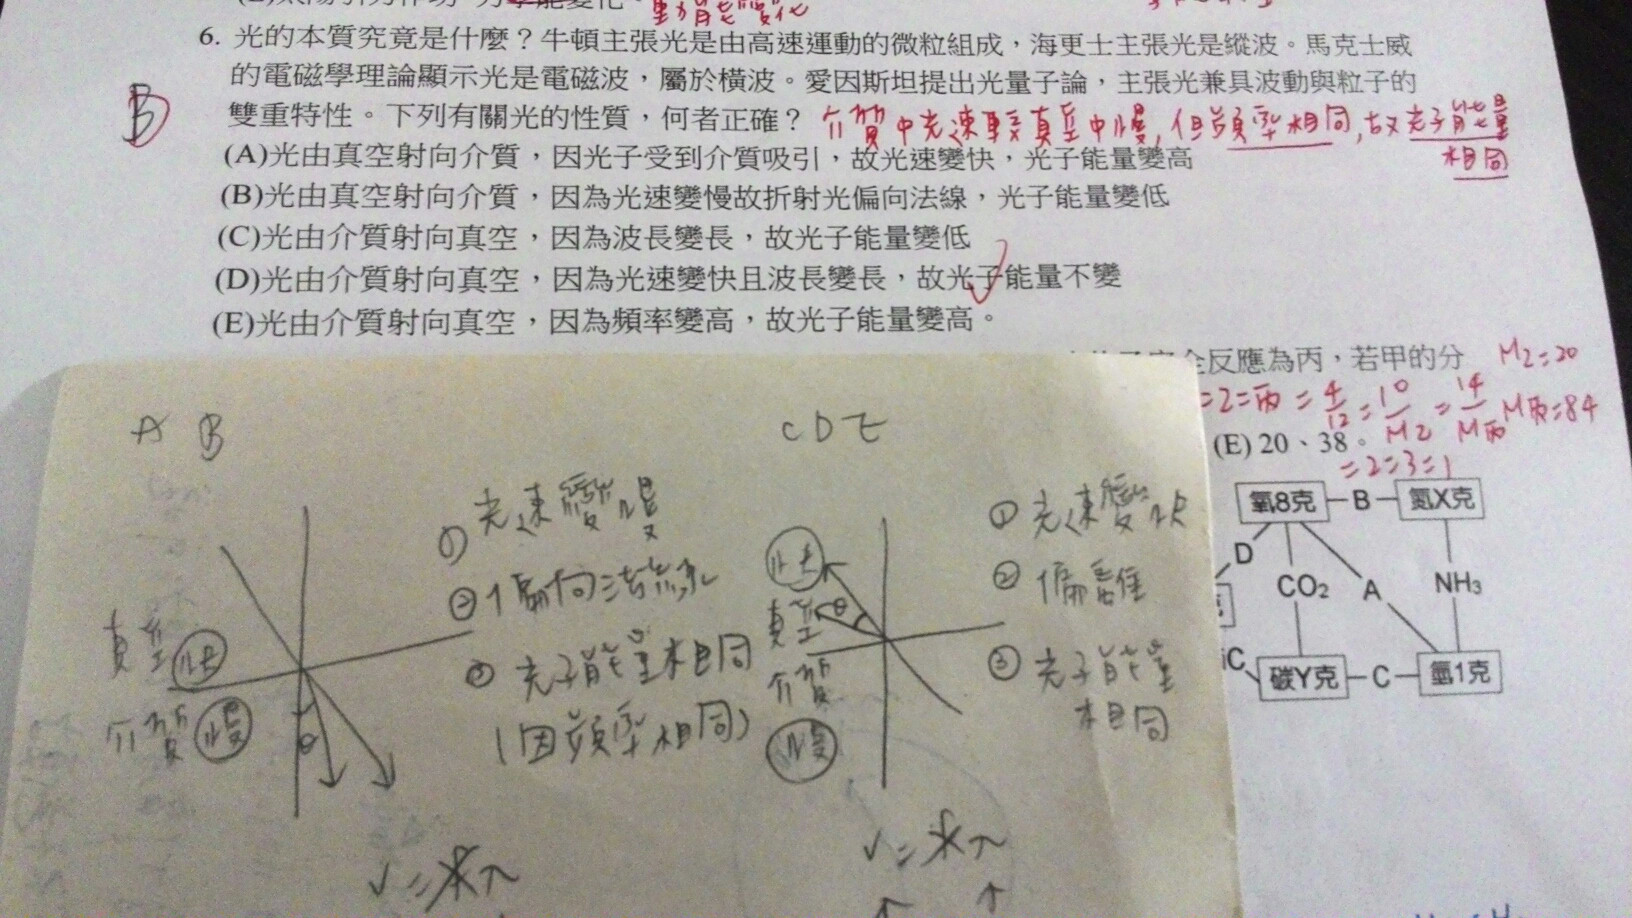 動能變化
6. 光的本質究竟是什麼？牛頓主張光是由高速運動的微粒組成，海更士主張光是縱波。馬克士威
的電磁學理論顯示光是電磁波，屬於橫波。愛因斯坦提出光量子論，主張光兼具波動與粒子的
B
雙重特性。下列有關光的性質，何者正確？ 介質中光速較真空中慢，但頻率相同，故光子能量
相同
(A)光由真空射向介質，因光子受到介質吸引，故光速變快，光子能量變高
(B)光由真空射向介質，因為光速變慢故折射光偏向法線，光子能量變低
(C)光由介質射向真空，因為波長變長，故光子能量變低
(D)光由介質射向真空，因為光速變快且波長變長，故光子能量不變
(E)光由介質射向真空，因為頻率變高，故光子能量變高。
全反應為丙，若甲的分 M乙=20
=2=丙 = 4/12 = 10/M乙 = 14/M丙 M丙=84
(E) 20、38。
=2=3=1
A B
① 光速變慢
② 偏向法線
③ 光子能量相同
(因頻率相同)
真空 快
介質 慢
θ
V=f λ
C D E
① 光速變快
② 偏離
③ 光子能量
相同
快
真空 θ
介質
慢
V=f λ
↑ ↑
氧8克 B 氮X克
D CO₂ A NH₃
C
碳Y克 C 氫1克